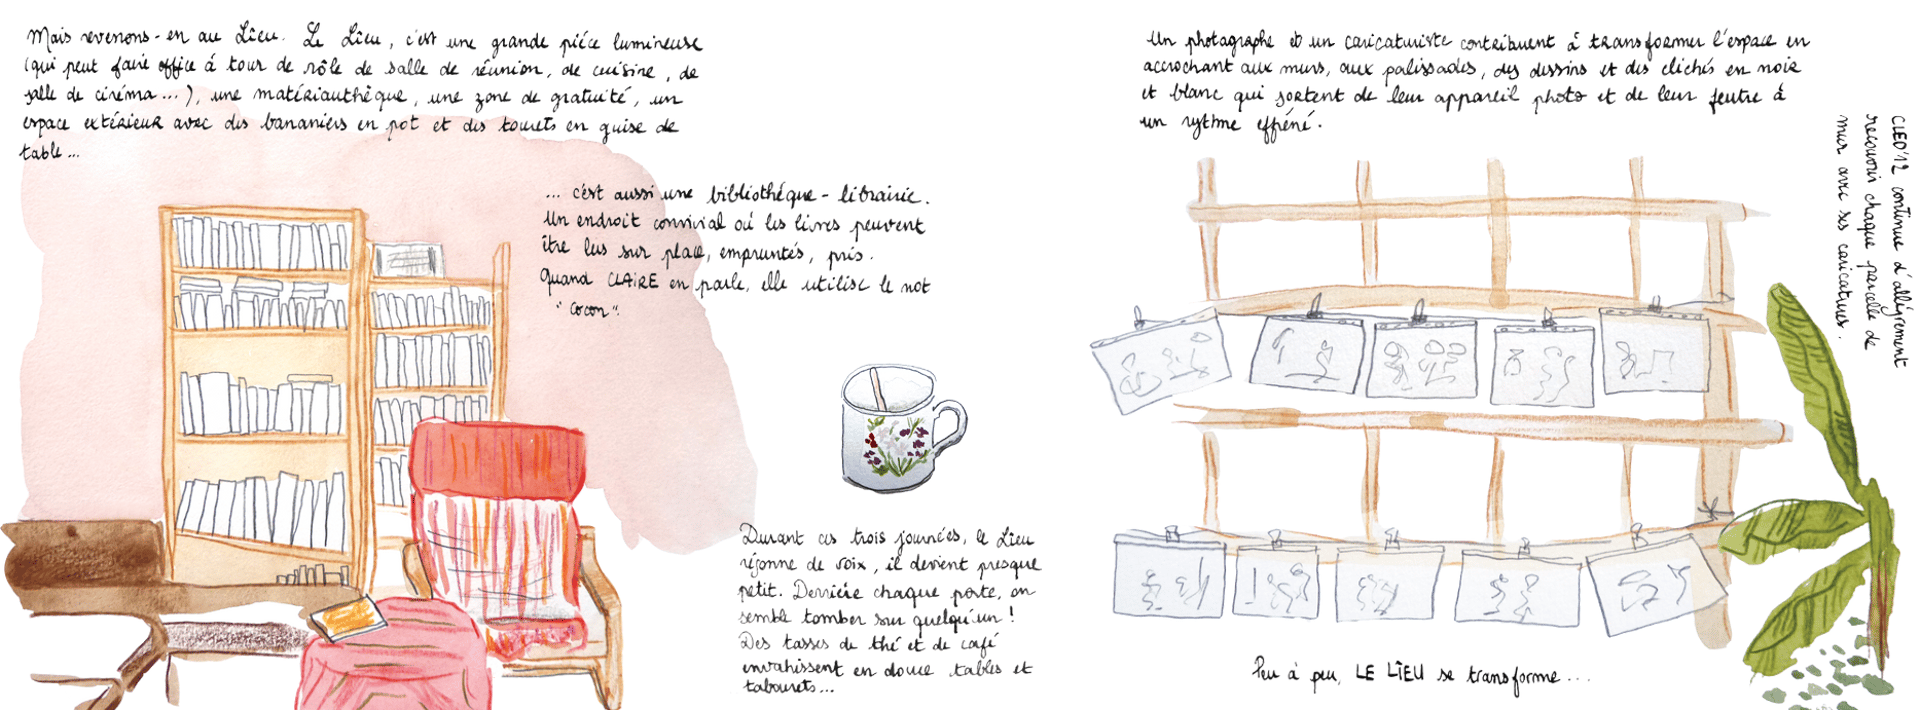 Mais revenons-en au Lîeu. Le Lîeu, c'est une grande pièce lumineuse
(qui peut faire office à tour de rôle de salle de réunion, de cuisine, de
salle de cinéma...), une matériauthèque, une zone de gratuité, un
espace extérieur avec des bananiers en pot et des tourets en guise de
table...
... c'est aussi une bibliothèque - librairie.
Un endroit convivial où les livres peuvent
être lus sur place, empruntés, pris.
Quand CLAIRE en parle, elle utilise le mot
"cocon".
Durant ces trois journées, le Lîeu
résonne de voix, il devient presque
petit. Derrière chaque porte, on
semble tomber sur quelqu'un !
Des tasses de thé et de café
envahissent en douce tables et
tabourets...
Un photographe et un caricaturiste contribuent à transformer l'espace en
accrochant aux murs, aux palissades, des dessins et des clichés en noir
et blanc qui sortent de leur appareil photo et de leur feutre à
un rythme effréné.
CLEO'12 continue d'allégrement
recouvrir chaque parcelle de
mur avec ses caricatures.
Peu à peu, LE LîEU se transforme...